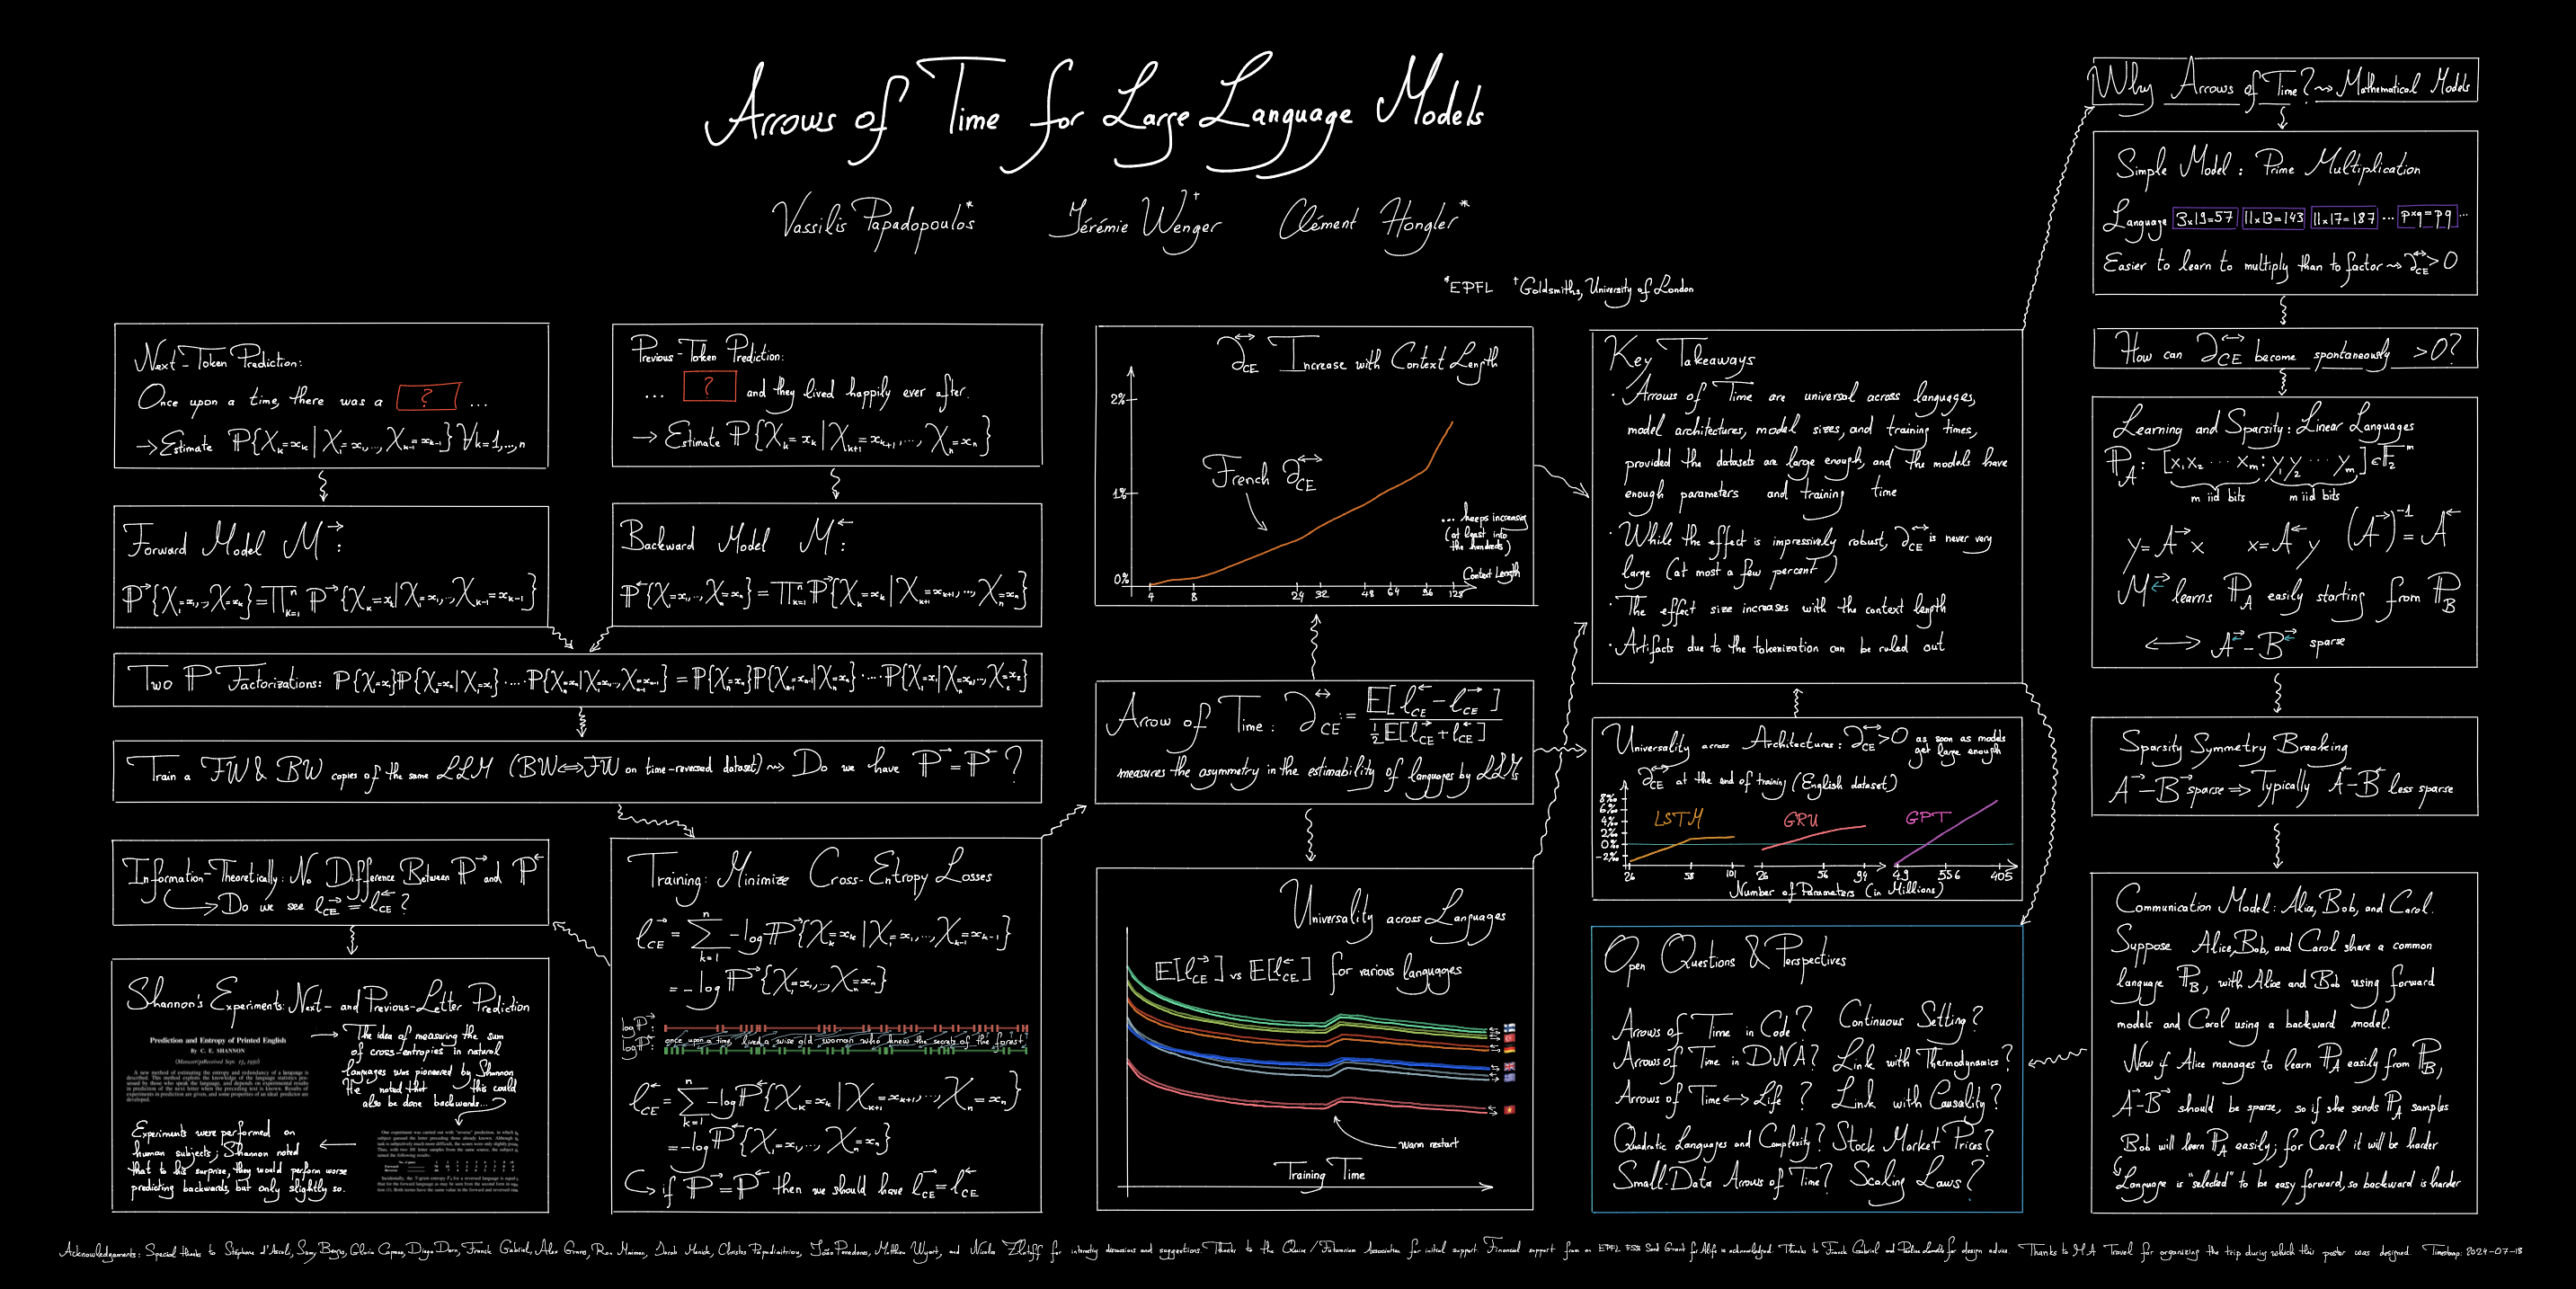 Arrows of Time for Large Language Models
Vassilis Papadopoulos* Jérémie Wenger† Clément Hongler*
*EPFL †Goldsmiths, University of London
Next-Token Prediction:
Once upon a time, there was a ? ...
→ Estimate ℙ{X_k=x_k | X_1=x_1,..., X_{k-1}=x_{k-1}} ∀k=1,...,n
Previous-Token Prediction:
... ? and they lived happily ever after.
→ Estimate ℙ{X_k=x_k | X_{k+1}=x_{k+1},..., X_n=x_n}
Forward Model M→:
ℙ→{X_1=x_1,..., X_k=x_k} = ∏_{k=1}^n ℙ→{X_k=x_k | X_1=x_1,..., X_{k-1}=x_{k-1}}
Backward Model M←:
ℙ←{X_1=x_1,..., X_n=x_n} = ∏_{k=1}^n ℙ←{X_k=x_k | X_{k+1}=x_{k+1},..., X_n=x_n}
Two ℙ Factorizations: ℙ{X_1=x_1}ℙ{X_2=x_2|X_1=x_1}·...·ℙ{X_n=x_n|X_1=x_1,...,X_{n-1}=x_{n-1}} = ℙ{X_n=x_n}ℙ{X_{n-1}=x_{n-1}|X_n=x_n}·...·ℙ{X_1=x_1|X_n=x_n,...,X_2=x_2}
Train a FW & BW copies of the same LLM (BW⟺FW on time-reversed dataset) ⇝ Do we have ℙ→=ℙ←?
Information-Theoretically: No Difference Between ℙ→ and ℙ←
↪ Do we see ℓ→_CE = ℓ←_CE?
Shannon's Experiments: Next- and Previous-Letter Prediction
Prediction and Entropy of Printed English
By C. E. SHANNON
(Manuscript Received Sept. 15, 1950)
A new method of estimating the entropy and redundancy of a language is
described. This method exploits the knowledge of the language statistics pos-
sessed by those who speak the language, and depends on experimental results
in prediction of the next letter when the preceding text is known. Results of
experiments in prediction are given, and some properties of an ideal predictor are
developed.
→ The idea of measuring the sum
of cross-entropies in natural
languages was pioneered by Shannon
He noted that this could
also be done backwards...
Experiments were performed on
human subjects; Shannon noted
that to his surprise, they would perform worse
predicting backwards, but only slightly so.
Training: Minimize Cross-Entropy Losses
ℓ→_CE = ∑_{k=1}^n -log ℙ→{X_k=x_k | X_1=x_1,..., X_{k-1}=x_{k-1}}
= -log ℙ→{X_1=x_1,..., X_n=x_n}
log ℙ→:
once upon a time, lived a wise old woman who knew the secrets of the forest
log ℙ←:
ℓ←_CE = ∑_{k=1}^n -log ℙ←{X_k=x_k | X_{k+1}=x_{k+1},..., X_n=x_n}
= -log ℙ←{X_1=x_1,..., X_n=x_n}
↪ if ℙ→=ℙ← then we should have ℓ→_CE = ℓ←_CE
∂↔_CE Increase with Context Length
2%
1%
0%
French ∂↔_CE
... keeps increasing
(at least into
the hundreds)
Context Length
4 8 24 32 48 64 96 128
Arrow of Time: ∂↔_CE := E[ℓ←_CE - ℓ→_CE] / ½E[ℓ→_CE + ℓ←_CE]
measures the asymmetry in the estimability of languages by LLMs
Universality across Languages
E[ℓ→_CE] vs E[ℓ←_CE] for various languages
warm restart
Training Time
Key Takeaways
· Arrows of Time are universal across languages,
model architectures, model sizes, and training times,
provided the datasets are large enough, and the models have
enough parameters and training time
· While the effect is impressively robust, ∂↔_CE is never very
large (at most a few percent)
· The effect size increases with the context length
· Artifacts due to the tokenization can be ruled out
Universality across Architectures: ∂↔_CE>0 as soon as models
get large enough
∂↔_CE at the end of training (English dataset)
8‰
6‰
4‰
2‰
0‰
-2‰
LSTM GRU GPT
26 58 101 26 56 94 49 556 405
Number of Parameters (in Millions)
Open Questions & Perspectives
Arrows of Time in Code? Continuous Setting?
Arrows of Time in DNA? Link with Thermodynamics?
Arrows of Time ⟷ Life? Link with Causality?
Quadratic Languages and Complexity? Stock Market Prices?
Small-Data Arrows of Time? Scaling Laws?
Why Arrows of Time? ⇝ Mathematical Models
Simple Model: Prime Multiplication
Language 3×19=57 11×13=143 11×17=187 ... p×q=pq ...
Easier to learn to multiply than to factor ⇝ ∂↔_CE>0
How can ∂↔_CE become spontaneously >0?
Learning and Sparsity: Linear Languages
ℙ_A: [x_1 x_2 ... x_m : y_1 y_2 ... y_m] ∈ 𝔽_2^m
m iid bits m iid bits
y=A→x x=A←y (A→)^{-1}=A←
M⇄ learns ℙ_A easily starting from ℙ_B
⟷ A⇄ - B⇄ sparse
Sparsity Symmetry Breaking
A→-B→ sparse ⇒ Typically A←-B← less sparse
Communication Model: Alice, Bob, and Carol.
Suppose Alice, Bob, and Carol share a common
language ℙ_B, with Alice and Bob using forward
models and Carol using a backward model.
Now if Alice manages to learn ℙ_A easily from ℙ_B,
A→-B→ should be sparse, so if she sends ℙ_A samples
Bob will learn ℙ_A easily; for Carol it will be harder
↪ Language is "selected" to be easy forward, so backward is harder
Acknowledgements: Special thanks to Stéphane d'Ascoli, Samy Bengio, Gloria Capano, Diego Dorn, Franck Gabriel, Alex Graves, Ron Maimon, Jacob Menick, Christos Papadimitriou, João Penedones, Matthieu Wyart, and Nicolas Zlatoff for interesting discussions and suggestions. Thanks to the Association for initial support. Financial support from an EPFL FSB Seed Grant for Alife is acknowledged. Thanks to Franck Gabriel and for design advice. Thanks to M.A Travel for organizing the trip during which this poster was designed. Timestamp: 2024-07-18